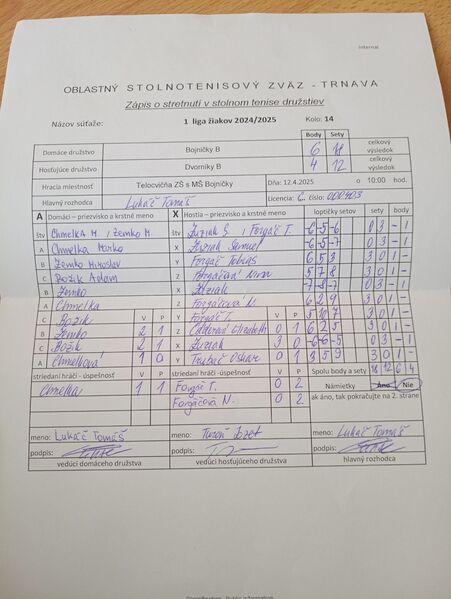 Internal
OBLASTNÝ STOLNOTENISOVÝ ZVÄZ - TRNAVA
Zápis o stretnutí v stolnom tenise družstiev
Názov súťaže: 1 liga žiakov 2024/2025 Kolo: 14
Body Sety
Domáce družstvo Bojničky B 6 18 celkový výsledok
Hosťujúce družstvo Dvorníky B 4 12 celkový výsledok
Hracia miestnosť Telocvičňa ZŠ s MŠ Bojničky Dňa: 12.4.2025 o 10:00 hod.
Hlavný rozhodca Lukáč Tomáš Licencia: C číslo: 000403
A Domáci – priezvisko a krstné meno X Hostia – priezvisko a krstné meno loptičky setov sety body
štv Chmelka M. / Žemko M. štv Žuziak S / Forgáč T. -6 -5 -6 0 3 - 1
A Chmelka Marko X Žuziak Samuel -6 -5 -7 0 3 - 1
B Žemko Miroslav Y Forgáč Tobias 6 5 3 3 0 1 -
C Božik Adam Z Forgáčová Nina 5 7 8 3 0 1 -
B Žemko X Žuziak -7 -8 -7 0 3 - 1
A Chmelka Z Forgáčová N. 6 2 9 3 0 1 -
C Božik Y Forgáč T. 5 10 7 3 0 1 -
B Žemko V 2 P 1 Z V 0 P 1 6 2 5 3 0 1 -
C Božik 2 1 X Žuziak 3 0 -6 -6 -5 0 3 - 1
A Chmelková 1 0 Y Oskar 0 1 3 5 9 3 0 1 -
striedaní hráči - úspešnosť V P striedaní hráči - úspešnosť V P Spolu body a sety 18 12 6 4
Chmelka 1 1 Forgáč T. 0 2 Námietky Áno Nie
Forgáčová N. 0 2 ak áno, tak pokračujte na 2. strane
meno: Lukáč Tomáš meno: Jozef meno: Lukáč Tomáš
podpis: podpis: podpis:
vedúci domáceho družstva vedúci hosťujúceho družstva hlavný rozhodca